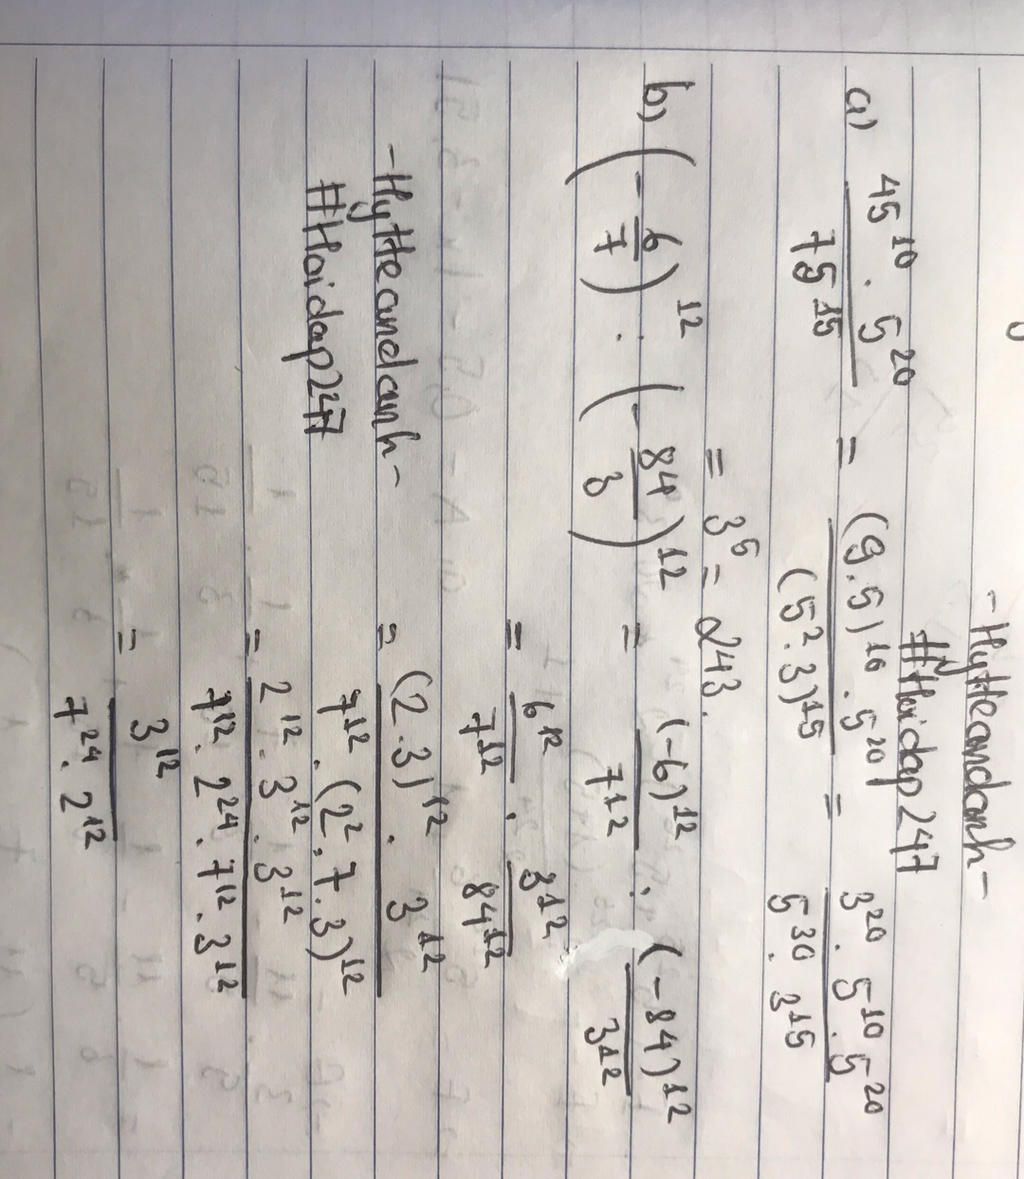 -Hytteandanh-
#Hoidap247
a) 45^10 . 5^20 / 75^15 = (9.5)^10 . 5^20 / (5^2 . 3)^15 = 3^20 . 5^10 . 5^20 / 5^30 . 3^15
= 3^5 = 243.
b) (-6/7)^12 : (-84/3)^12 = (-6)^12 / 7^12 : (-84)^12 / 3^12
= 6^12 / 7^12 . 3^12 / 84^12
-Hytteandanh- = (2.3)^12 . 3^12 / 7^12 . (2^2 . 7 . 3)^12
#Hoidap247
= 2^12 . 3^12 . 3^12 / 7^12 . 2^24 . 7^12 . 3^12
= 3^12 / 7^24 . 2^12